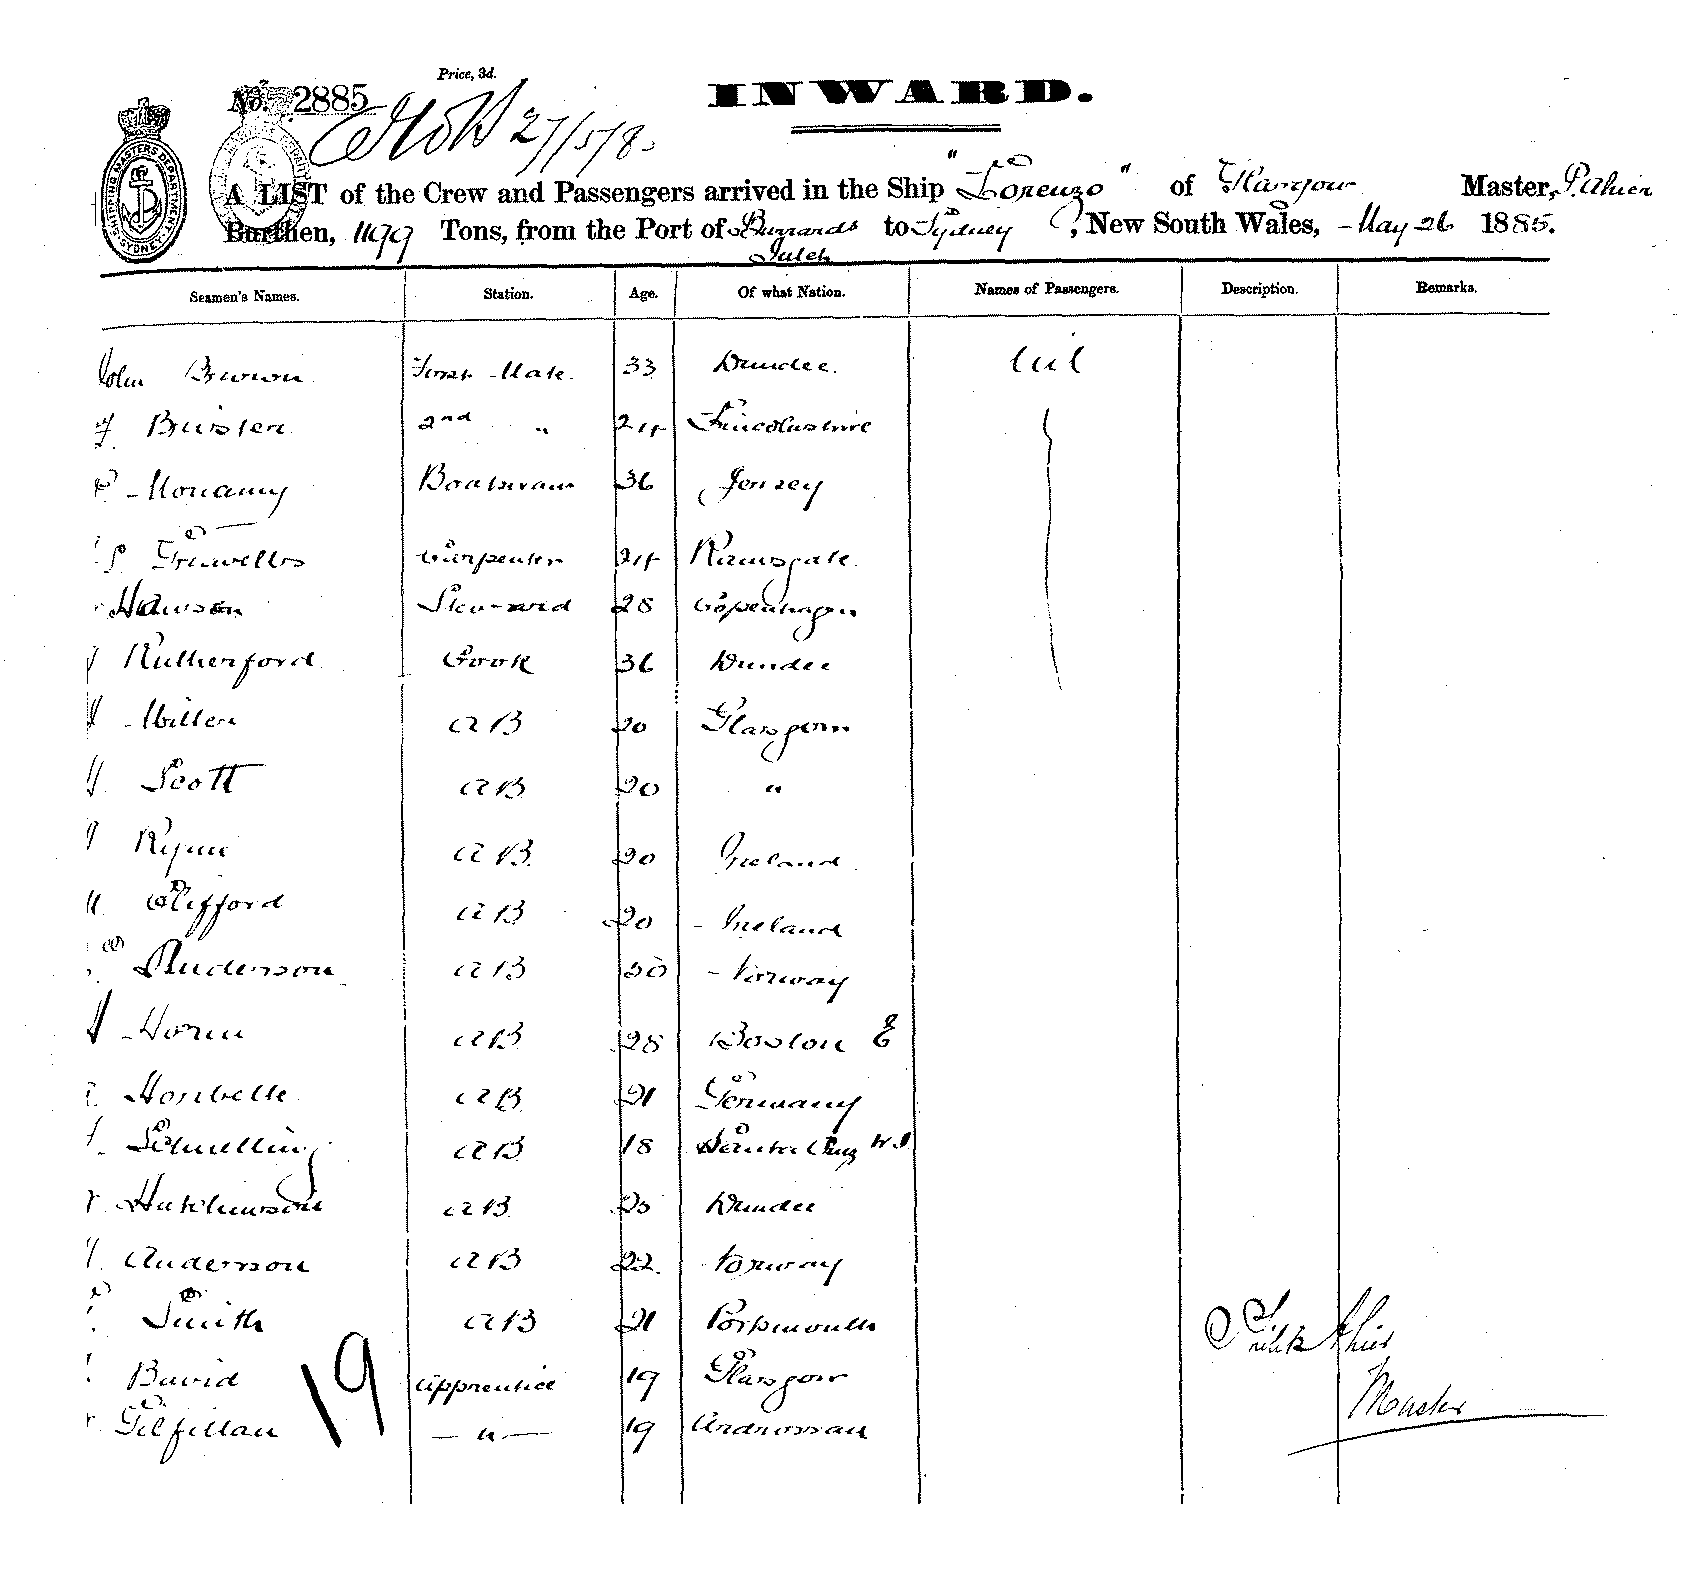 Price, 3d.
INWARD.
No. 2885
27/5/8
SHIPPING MASTERS DEPARTMENT SYDNEY
A LIST of the Crew and Passengers arrived in the Ship "Lorenzo" of Glasgow Master,
Burthen, 1199 Tons, from the Port of Burrards to Sydney, New South Wales, May 26 1885.
Seamen's Names. Station. Age. Of what Nation. Names of Passengers. Description. Remarks.
John Brown First Mate 33 Dundee Nil
2nd " 24 Lincolnshire
Mouamy Boatswain 36 Jersey
Carpenter 24 Ramsgate
Steward 28 Copenhagen
Rutherford Cook 36 Dundee
Miller AB 20 Glasgow
Scott AB 20 "
AB 20 Ireland
Clifford AB 20 Ireland
Anderson AB Norway
Horn AB 28 Boston E
AB 21 Germany
Schmelling AB 18 Santa Cruz W.I
Hutchinson AB 23 Dundee
Anderson AB 22 Norway
Smith AB 21 Portsmouth
Apprentice 19 Glasgow
Gilfillan — " — 19 Ardrossan
19
Master